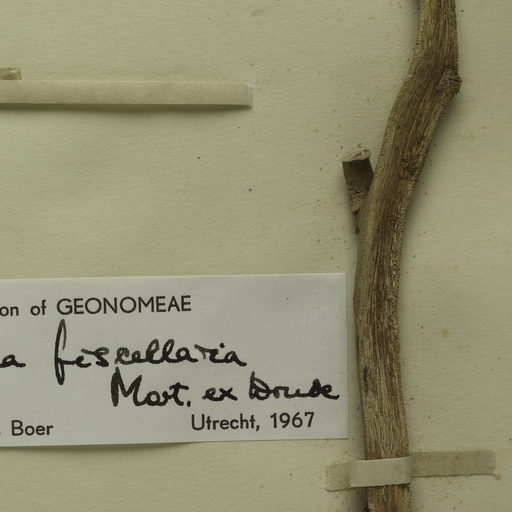 on of GEONOMEAE
a fiscellaria
Mart. ex Drude
. Boer
Utrecht, 1967